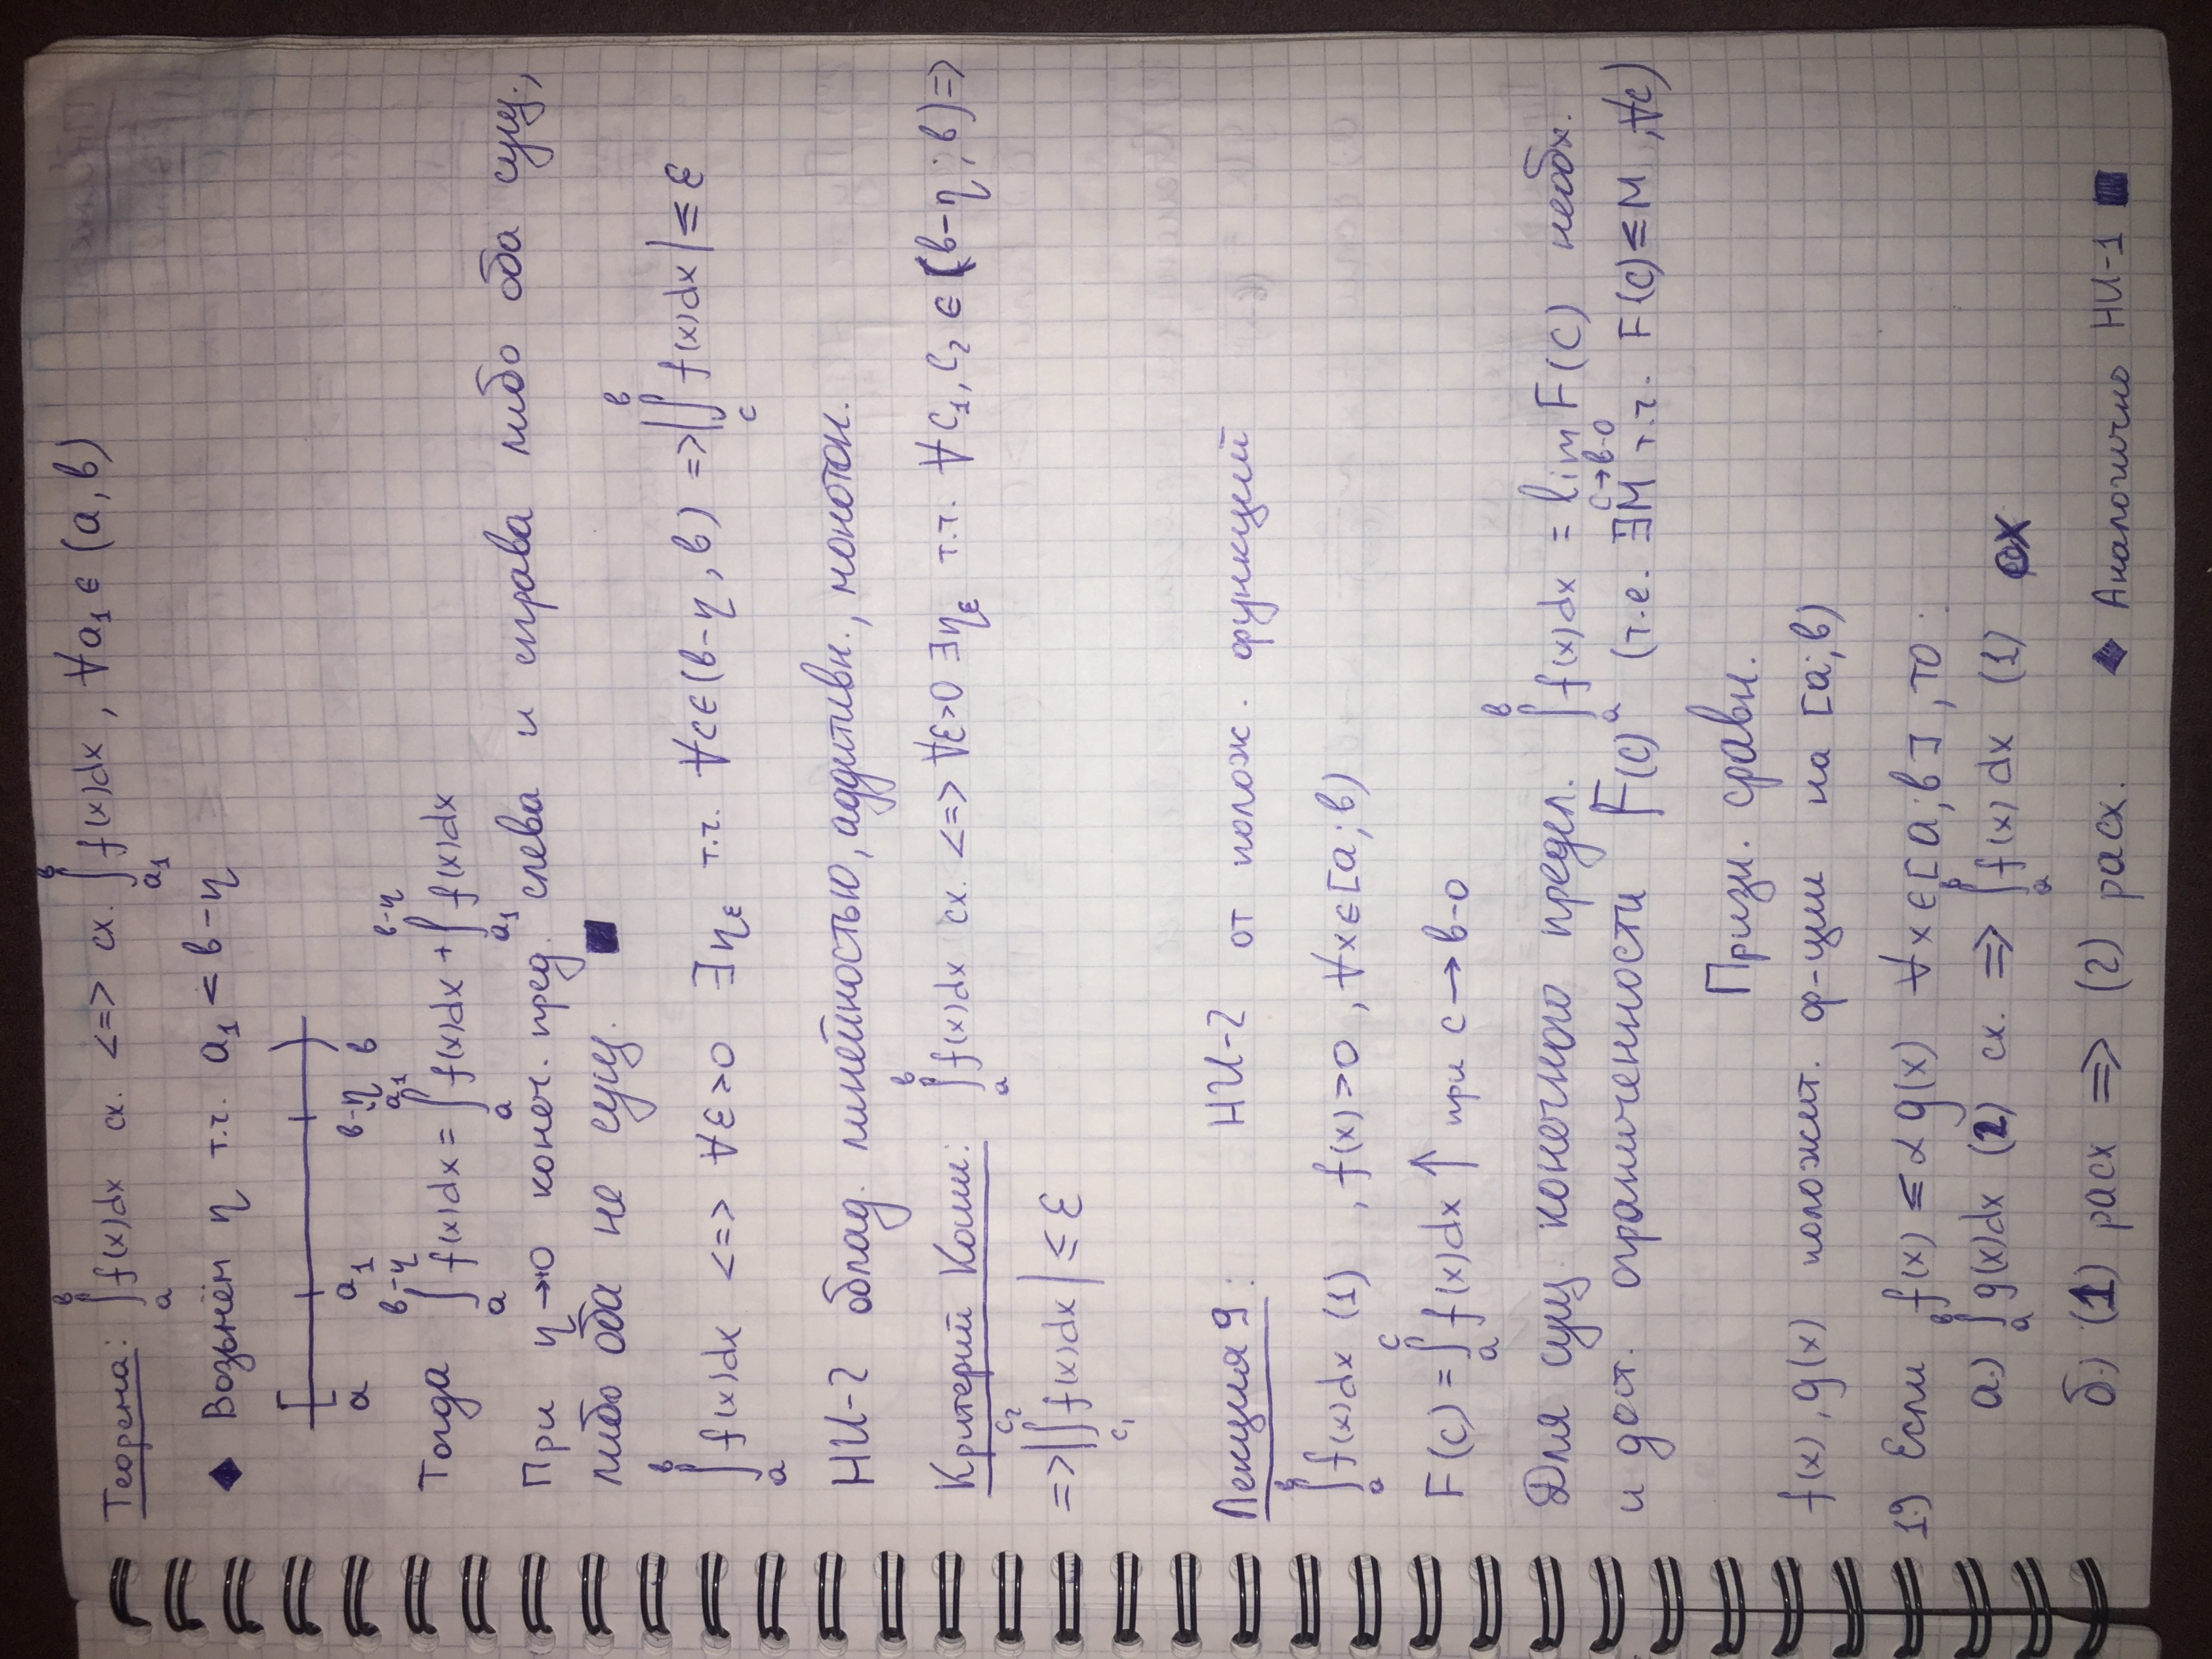 Теорема: ∫ₐᵇ f(x)dx сх. <=> сх. ∫ₐ₁ᵇ f(x)dx , ∀a₁ ∈ (a, b)
◆ Возьмём η т.ч. a₁ < b-η
a a₁ b-η b
Тогда ∫ₐ^(b-η) f(x)dx = ∫ₐ^(a₁) f(x)dx + ∫ₐ₁^(b-η) f(x)dx
При η→0 конеч. пред. слева и справа либо оба сущ.,
либо оба не сущ. ■
∫ₐᵇ f(x)dx <=> ∀ε>0 ∃η_ε т.ч. ∀c∈(b-η, b) => |∫_c^b f(x)dx| ≤ ε
НИ-2 облад. линейностью, аддитивн., монотон.
Критерий Коши: ∫ₐᵇ f(x)dx сх. <=> ∀ε>0 ∃η_ε т.ч. ∀c₁, c₂ ∈ (b-η; b) =>
=> |∫_(c₁)^(c₂) f(x)dx| ≤ ε
Лекция 9: НИ-2 от полож. функций
∫ₐᵇ f(x)dx (1) , f(x)>0 , ∀x∈[a; b)
F(c) = ∫ₐ^c f(x)dx ↑ при c→b-0
Для сущ. конечного предел. ∫ₐᵇ f(x)dx = lim_(c→b-0) F(c) необх.
и дост. ограниченности F(c) (т.е. ∃M т.ч. F(c) ≤ M , ∀c)
Призн. сравн.
f(x), g(x) положит. ф-ции на [a; b)
1.) Если f(x) ≤ αg(x) ∀x∈[a; b], то:
а.) ∫ₐᵇ g(x)dx (2) сх. => ∫ₐᵇ f(x)dx (1) сх
б.) (1) расх => (2) расх. ◆ Аналогично НИ-1 ■